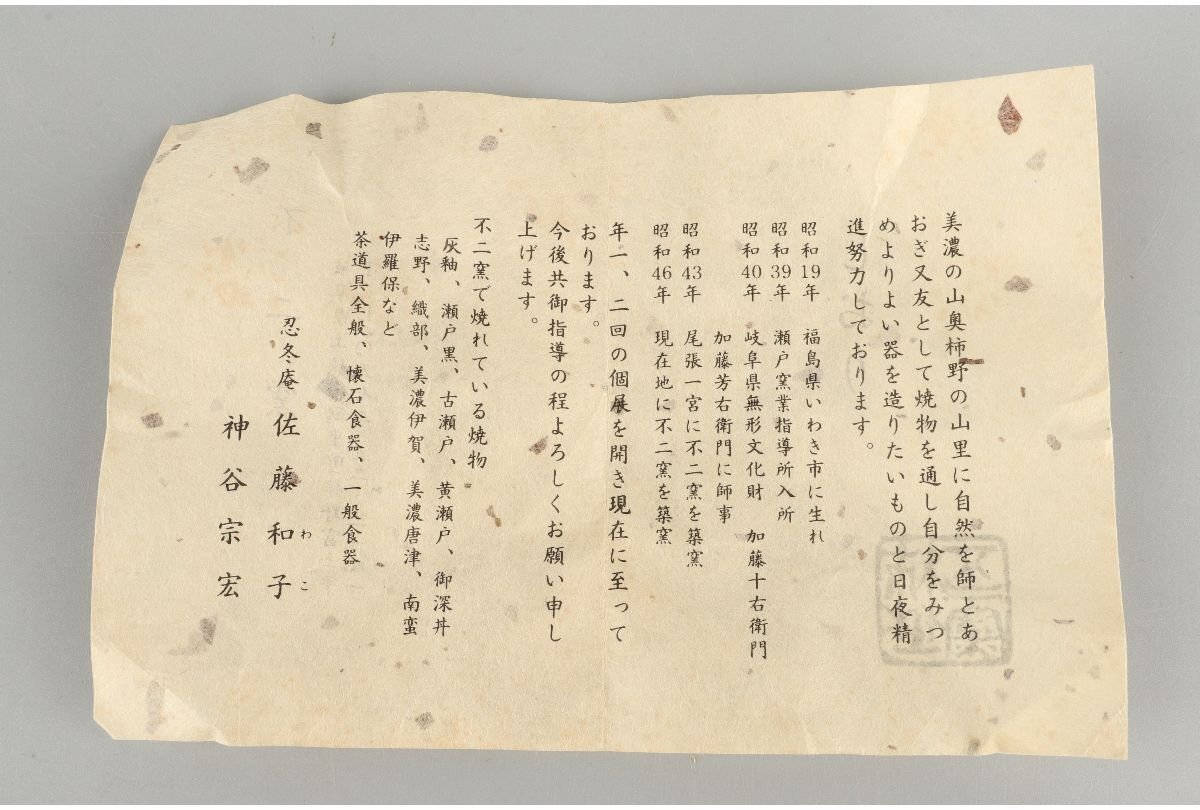 美濃の山奥柿野の山里に自然を師とあ
おぎ又友として焼物を通し自分をみつ
めよりよい器を造りたいものと日夜精
進努力しております。
昭和19年 福島県いわき市に生れ
昭和39年 瀬戸窯業指導所入所
昭和40年 岐阜県無形文化財 加藤十右衛門
加藤芳右衛門に師事
昭和43年 尾張一宮に不二窯を築窯
昭和46年 現在地に不二窯を築窯
年一、二回の個展を開き現在に至って
おります。
今後共御指導の程よろしくお願い申し
上げます。
不二窯で焼れている焼物。
灰釉、瀬戸黒、古瀬戸、黄瀬戸、御深丼
志野、織部、美濃伊賀、美濃唐津、南蛮
伊羅保など
茶道具全般、懐石食器、一般食器
忍冬庵 佐藤和子
わこ
神谷宗宏